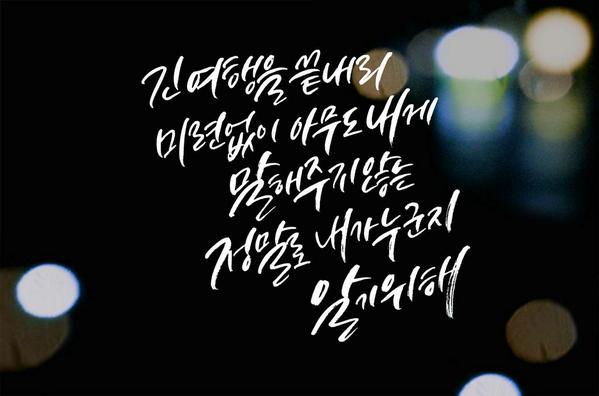 긴 여행을 끝내리
미련없이 아무도 내게
말해주지 않는
정말로 내가 누군지
알기위해